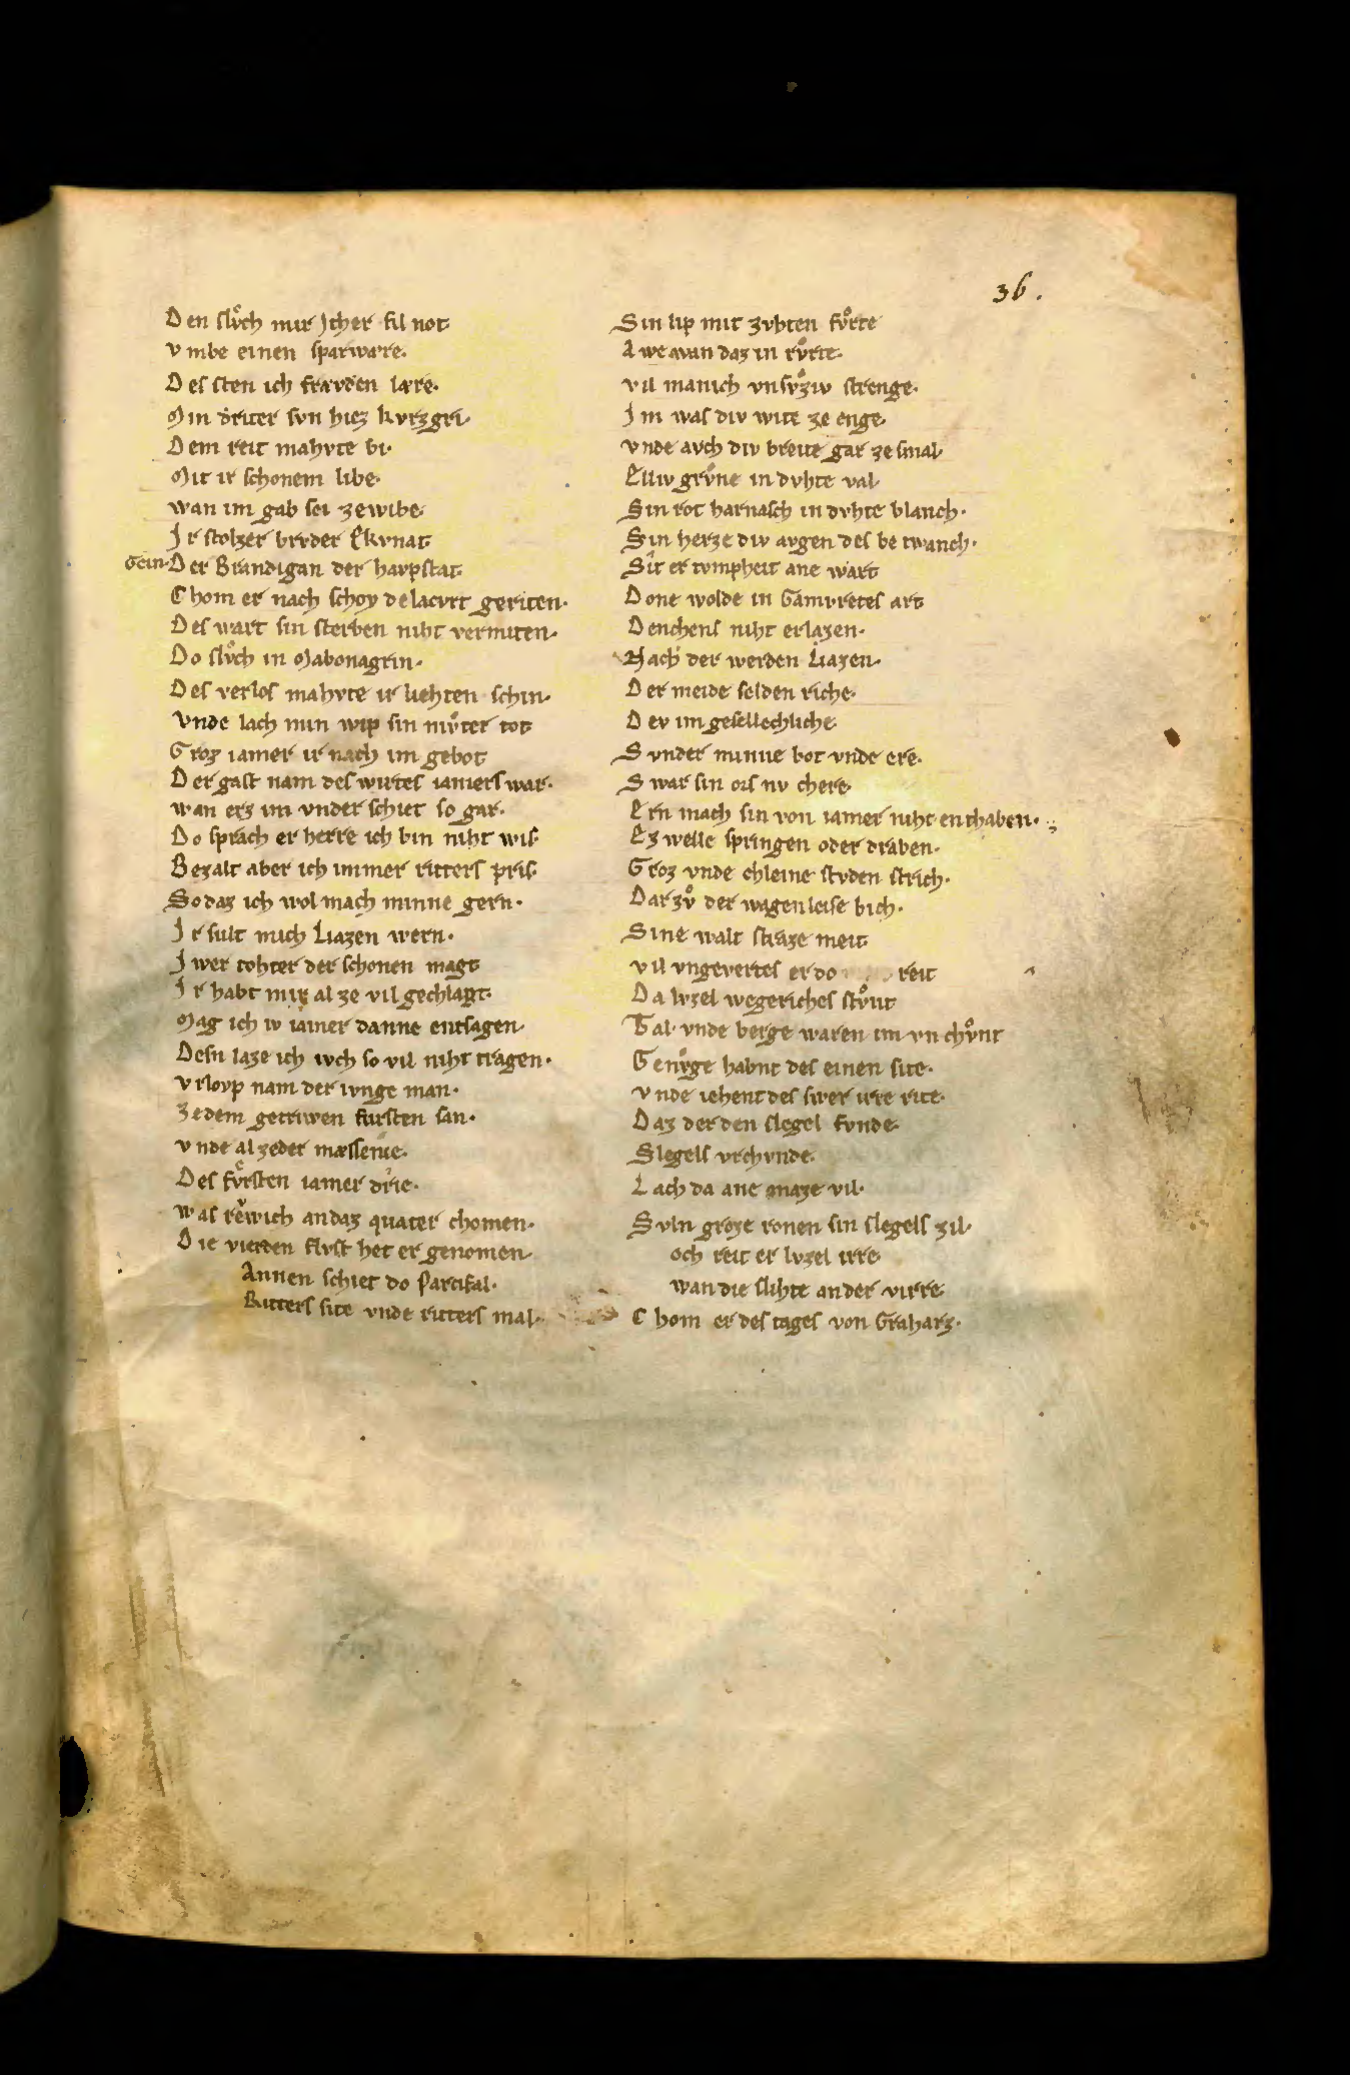 36.
Den slvͦch mir Jther fil not
vmbe einen sparwære.
Des sten ich frævden lære.
Min dritter svn hiez kvrzgri.
Dem reit mahvte bi.
Mit ir schonem libe.
wan im gab sei ze wibe.
Jr stolzer brvder Ekvnat.
Gein Der Brandigan der havpstat.
Chom er nach schoy delacvrt geriten.
Des wart sin sterben niht vermiten.
Do slvͦch in Mabonagrin.
Des verlos mahvte ir liehten schin.
vnde lach min wip sin mvͦter tot
Groz iamer ir nach im gebot
Der gast nam des wirtes iamers war.
wan erz im vnder schiet so gar.
Do sprach er herre ich bin niht wis.
Bezalt aber ich immer ritters pris.
So daz ich wol mach minne gern.
Jr sult mich Liazen wern.
Jwer tohter der schonen magt
Jr habt mir al ze vil gechlagt.
Mag ich iv iamer danne entsagen.
Desn laze ich ivch so vil niht tragen.
vrlovp nam der ivnge man.
zedem getriwen fursten san.
vnde al zeder mæssenie.
Des fvͤrsten iamer drie.
was rewich andaz quater chomen.
Die vierden flvst het er genomen.
Annen schiet do Parcifal.
Ritters site vnde ritters mal.
Sin lip mit zvhten fvͦrte
Awe wan daz in rvͦrte.
vil manich vnsvͦziv strenge.
Jm was div wite ze enge.
vnde avch div breite gar ze smal.
Elliv grvͦne in dvhte val.
Sin rot harnasch in dvhte blanch.
Sin herze div avgen des be twanch.
Sit er tvmpheit ane wart
Done wolde in Gamvretes art
Denchens niht erlazen.
Nach der werden Liazen.
Der meide selden riche.
Dev im gesellechliche.
Svnder minne bot vnde ere.
Swar sin ors nv chere.
Ern mach sin von iamer niht enthaben.
Ez welle springen oder draben.
Groz vnde chleine stvden strich.
Dar zvͦ der wagenleise bich.
Sine walt straze meit
vil vngevertes er do reit
Da lvzel wegeriches stvͦnt
Tal vnde berge waren im vn chvͦnt
Genvͦge habnt des einen site.
vnde iehent des swer irre rite.
Daz der den slegel fvnde.
Slegels vrchvnde.
Lach da ane maze vil.
Svln groze ronen sin slegels zil.
och reit er lvzel irre.
wan die slihte an der virre
Chom er des tages von Graharz.